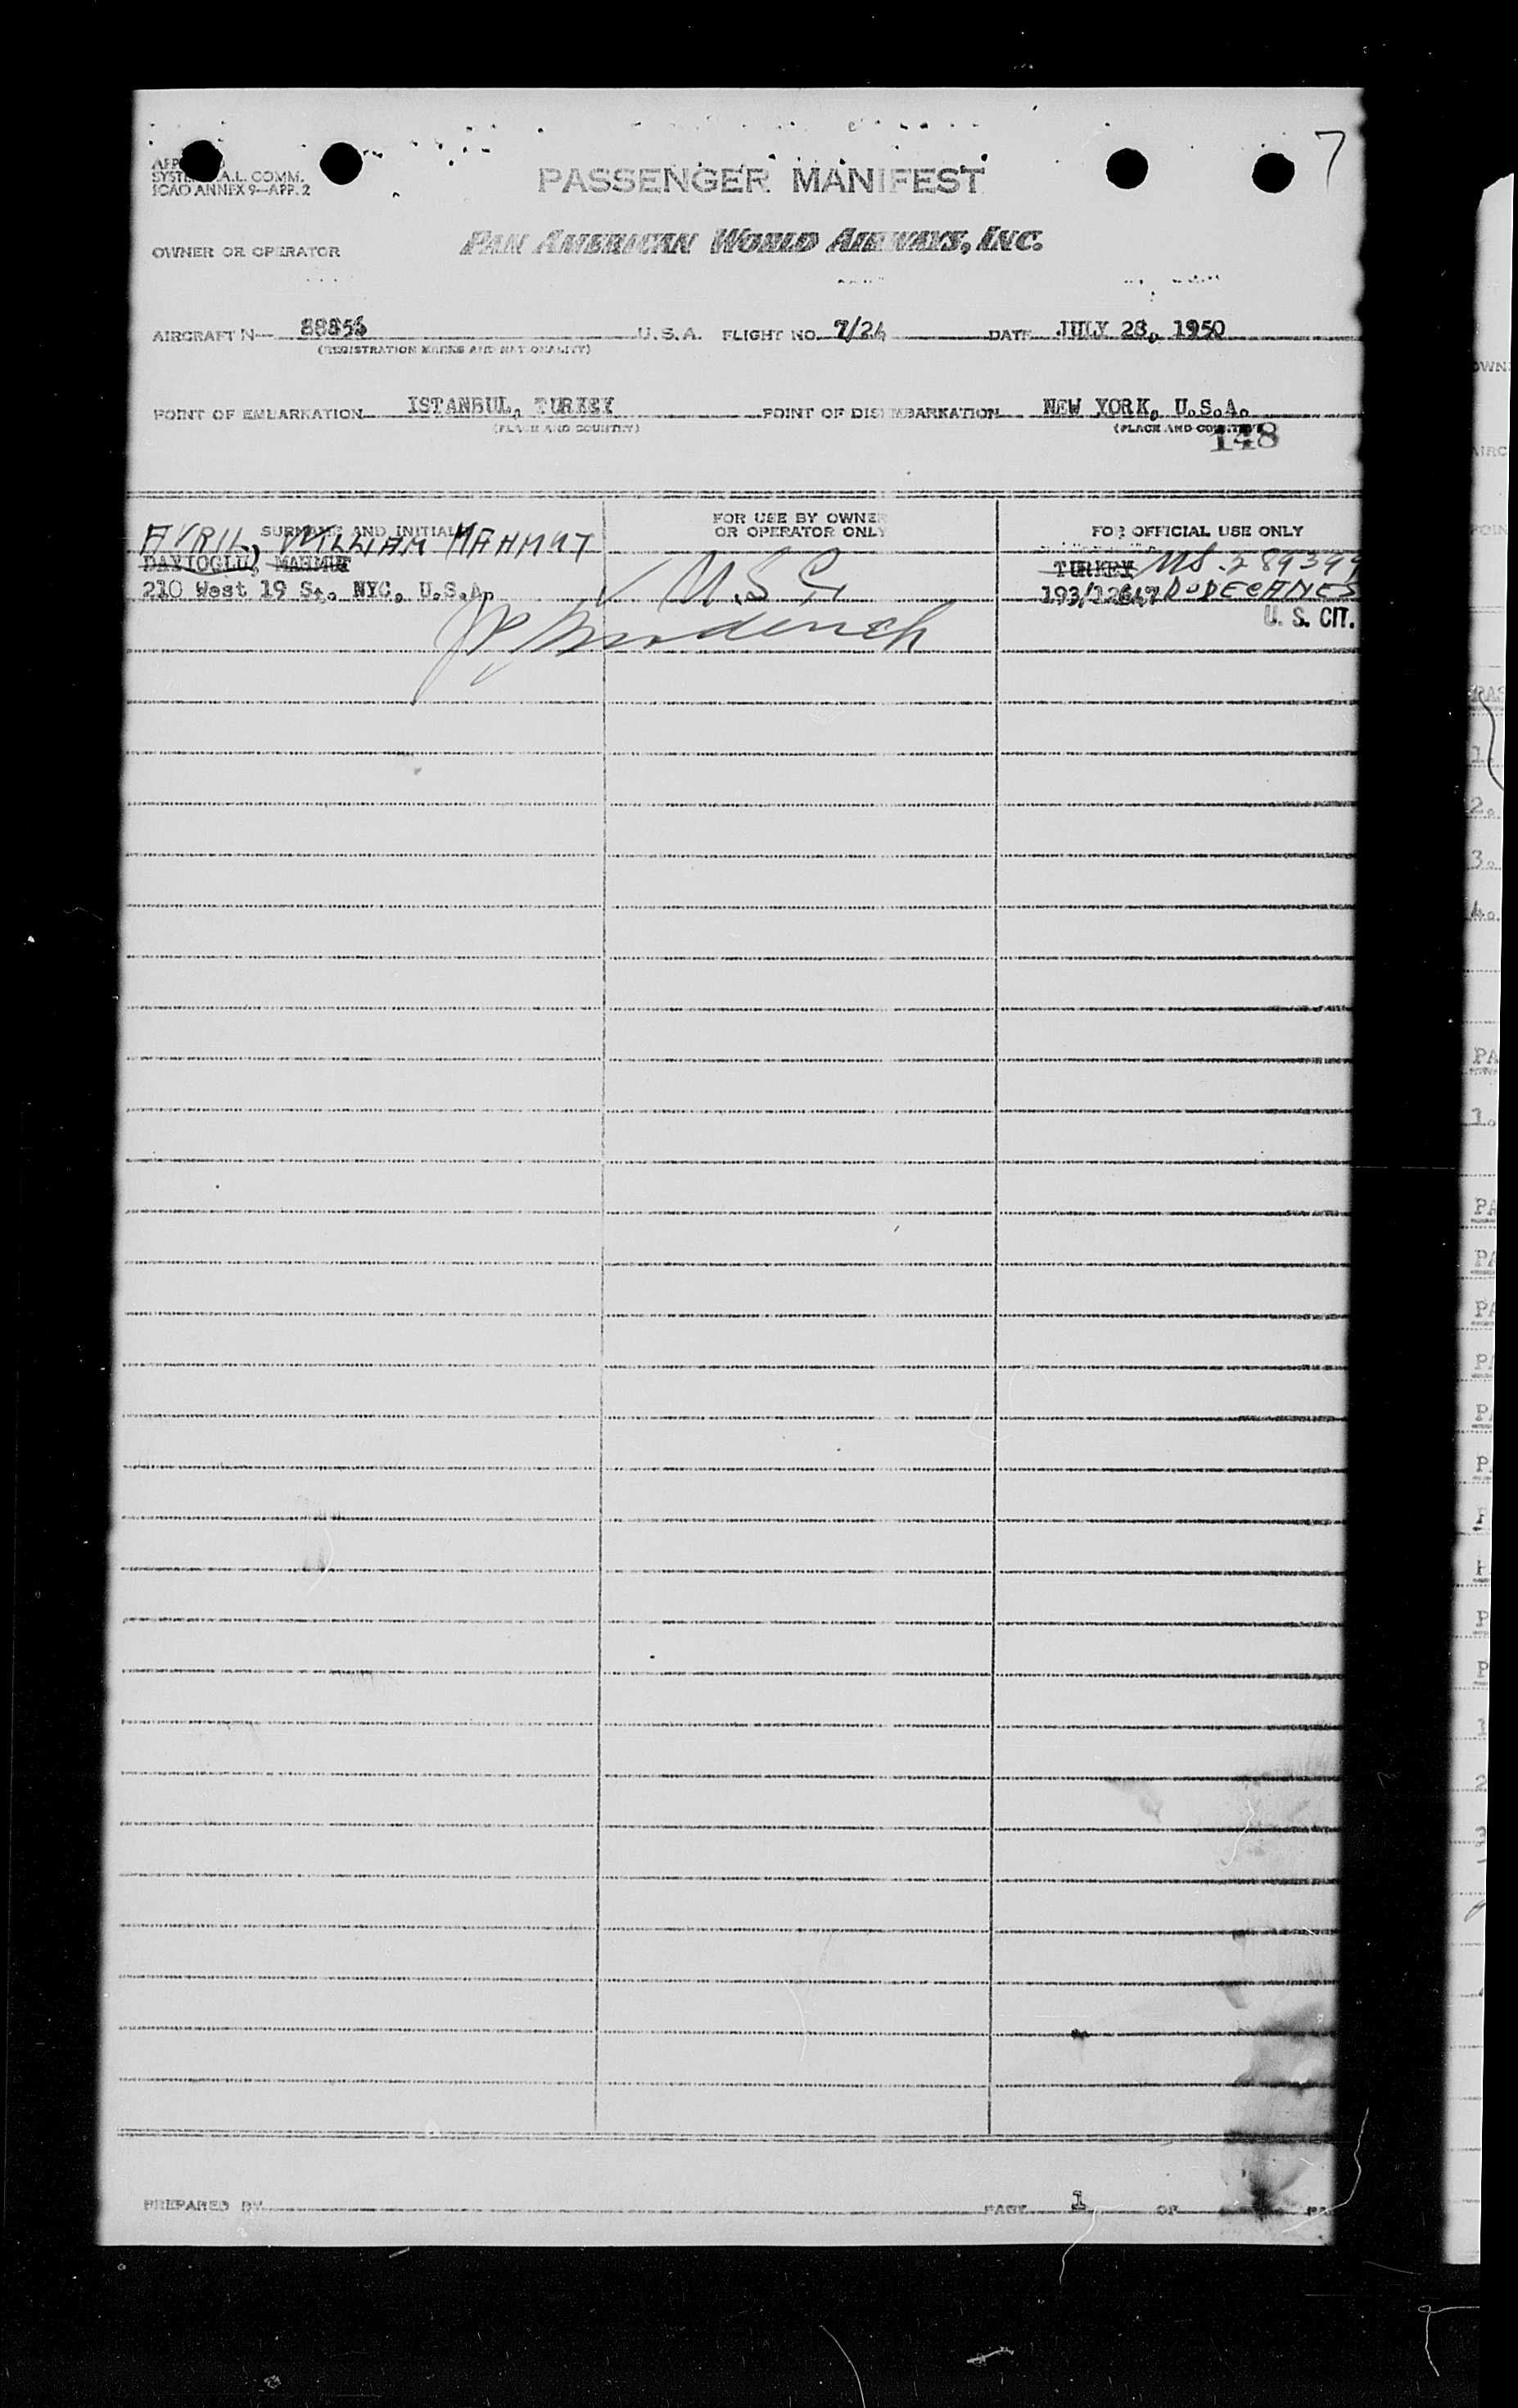 7
SYSTEM A.L. COMM.
ICAO ANNEX 9—APP. 2
PASSENGER MANIFEST
OWNER OR OPERATOR
PAN AMERICAN WORLD AIRWAYS, INC.
AIRCRAFT N— 88856 U.S.A. FLIGHT NO. 7/24 DATE JULY 28, 1950
(REGISTRATION MARKS AND NATIONALITY)
POINT OF EMBARKATION ISTANBUL, TURKEY POINT OF DISEMBARKATION NEW YORK, U.S.A.
(PLACE AND COUNTRY) (PLACE AND COUNTRY)
148
SURNAME AND INITIALS FOR USE BY OWNER OR OPERATOR ONLY FOR OFFICIAL USE ONLY
AVRIL, WILLIAM MAHMUT
DAYIOGLU, MAHMUT TURKEY
210 West 19 St. NYC, U.S.A. 193/12647 DODECANES
U. S. CIT.
PREPARED BY PAGE 1 OF